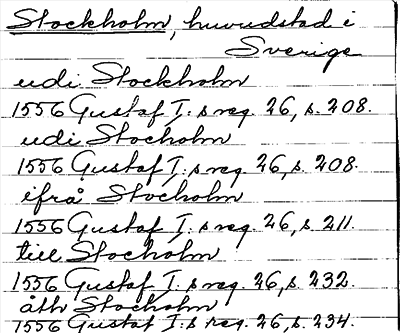 Stockholm, huvudstad i
Sverige
udi Stockholm
1556 Gustaf I:s reg. 26, s. 208.
udi Stocholm
1556 Gustaf I:s reg. 26, s. 208.
ifrå Stocholm
1556 Gustaf I:s reg. 26, s. 211.
till Stocholm
1556 Gustaf I:s reg. 26, s. 232.
åth Stocholm
1556 Gustaf I:s reg. 26, s. 234.